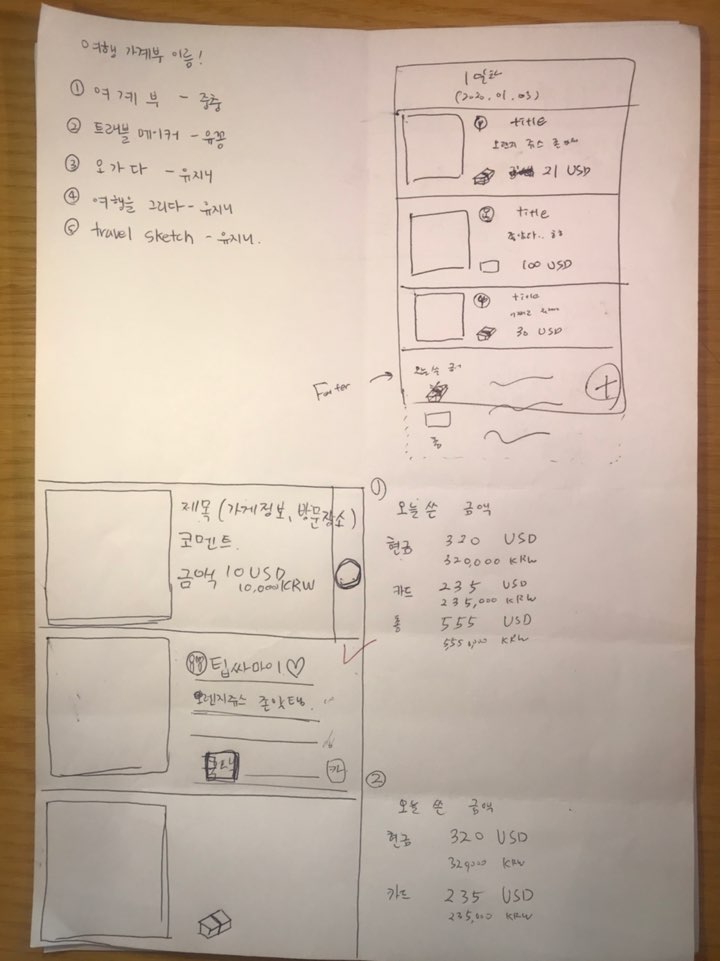 여행 가계부 이름!
① 여계부 - 쭝쭝
② 트래블 메이커 - 유꽁
③ 오가다 - 유지니
④ 여행을 그리다 - 유지니
⑤ travel sketch - 유지니.
1일차
(2020.01.03)
title
오렌지 쥬스
21 USD
title
100 USD
④ title
30 USD
오늘 쓴
총
Footer
제목 (가게정보, 방문장소)
코멘트.
금액 10 USD
10,000 KRW
팁싸마이♡
오렌지쥬스 존맛탱.
카
1)
오늘 쓴 금액
현금 320 USD
320,000 KRW
카드 235 USD
235,000 KRW
총 555 USD
555,000 KRW
②
오늘 쓴 금액
현금 320 USD
320,000 KRW
카드 235 USD
235,000 KRW